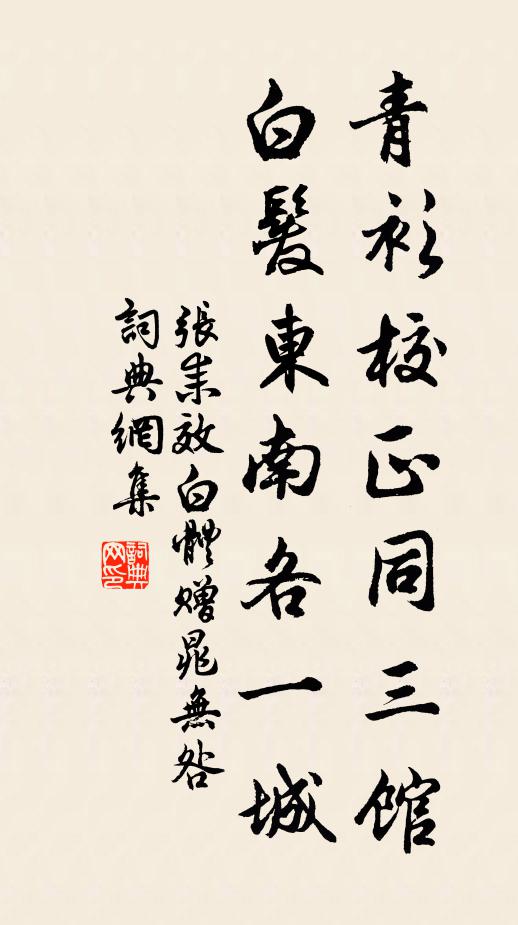 青衫校正同三館
白髮東南各一城
張耒效白體贈晁無咎
詞典網集
詞典網印